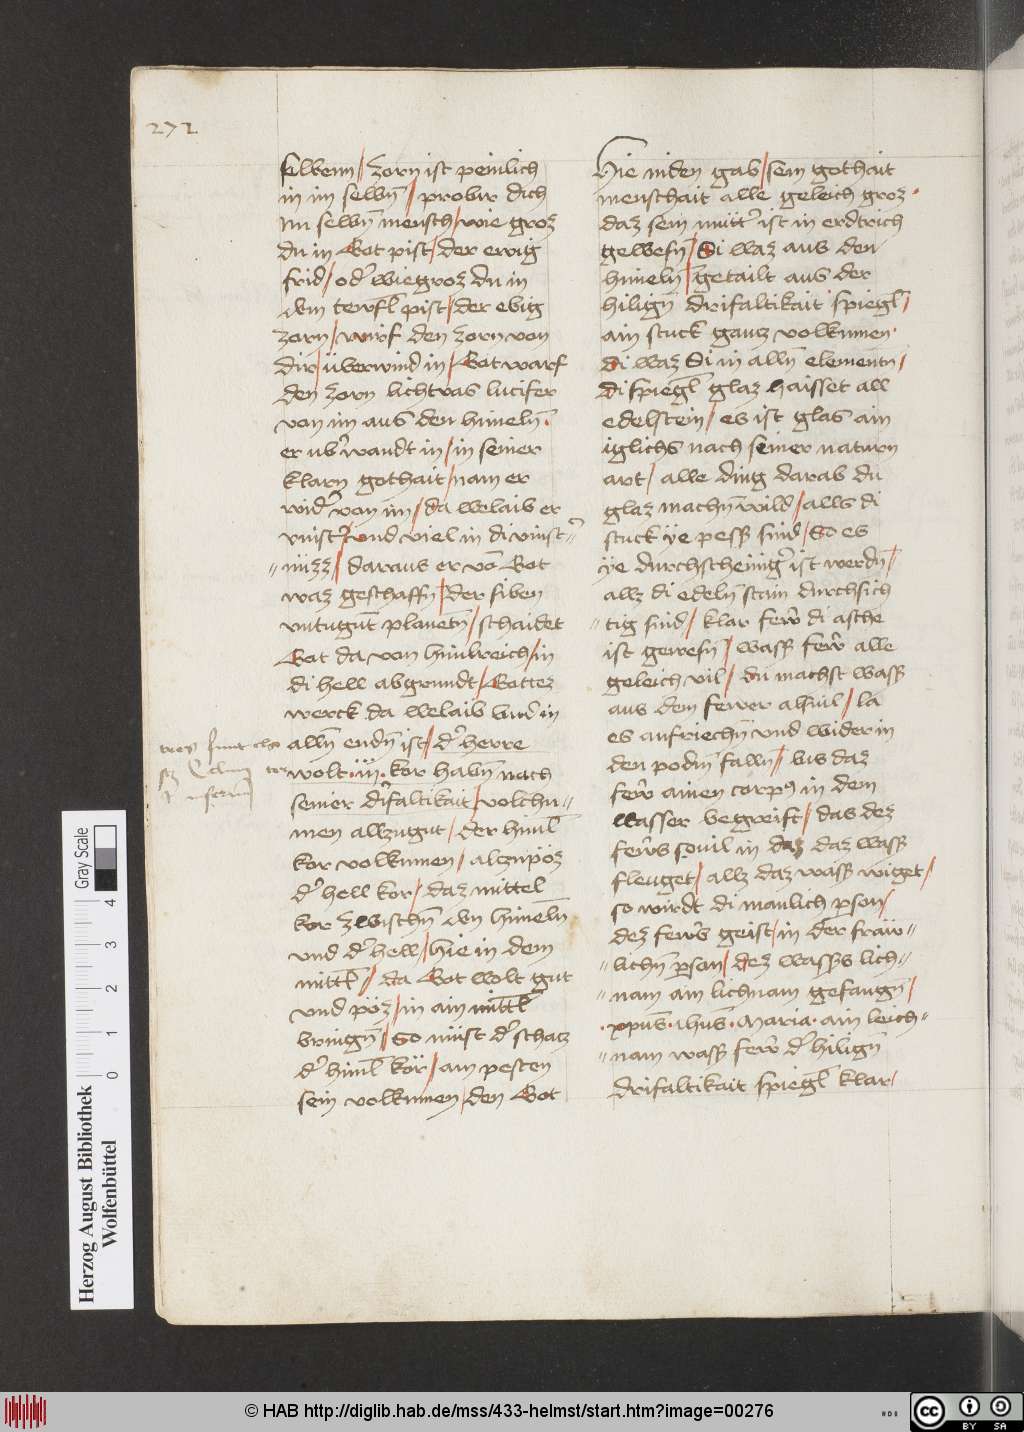 272
selbenn / zorn ist peinlich
in im selbn̄ / probir dich
im selbn̄ mensch / wie groz
du in Got pist / der ewig
frid / od̓ wie groz du in
dem tewfl̄ pist / der ebig
zorn / wirf den zorn von
dir / überwind in / Got warf
den zorn lichtvas lucifer
von im aus den himeln̄.
er ub̓wandt in / in seiner
klarn gothait / nam er
wid̓ von im / da belaib er
vinst̓ / und viel in di vinst̓=
=nüzz / daraus er vō Got
waz geschaffn̄ / der siben
untugn̄t planetn̄ / schaidet
Got da von himlreich / in
di hell abgrundt / Gottez
werck da belaib und in
alln̄ endn̄ ist / d̓ herre
wolt .iii. kor habn̄ nach
seiner d̓ifaltikait / volchu=
men allzugut / der himl̄
kor volkumen / alzupöz
d̓ hell kor / daz mittel
kor zwischn̄ den himeln̄
und d̓ hell / hie in dem
mittl̄ / da Got wolt gut
und pöz / in ain mittl̄
bringn̄ / So müst d̓ schatz
d̓ himl̄ kör / am pesten
sein volkumen / den Got
Hie niden gab / sein gothait
menschait alle geleich groz.
daz sein mütt̓ ist in erdtrich
gewesn̄ / Si waz aus den
himeln̄ / getailt aus der
hilign̄ drifaltikait spiegl̄ /
ain stuck gantz volkumen.
di waz Si in alln̄ elementn̄ /
di spiegl̄ glaz haisset all
edelstein / es ist glas ain
iglichs nach seiner naturn
art / alle ding darab du
glaz machn̄ wild / alls di
stuck ye pesß sind / So es
ye durchscheinig̓ ist werdn̄ /
allz di edeln̄ stain durchsich
=tig sind / klar few̓ di asche
ist gewesn̄ / wasß few̓ alle
geleich vil / du machst wasß
aus dem fewer alsuil / la
es aufriechn̄ und wider in
den podm̄ falln̄ / bis daz
few̓ ainen corp9 in dem
wasser begreift / das dez
few̓s souil in daz daz wasß
fleuget / allz daz wasß wiget /
so wirdt di manlich pson /
dez few̓s geist / in der fraw=
=lichn̄ pson / dez wasßs lich=
=nam ain lichnam gefangn̄ /
.xpūs. ihūs. Maria. ain leich=
=nam wasß few̓ d̓ hilign̄
drifaltikait spiegl̄ klar /
Herzog August Bibliothek
Wolfenbüttel
Gray Scale
0 1 2 3 4
© HAB http://diglib.hab.de/mss/433-helmst/start.htm?image=00276
cc BY SA